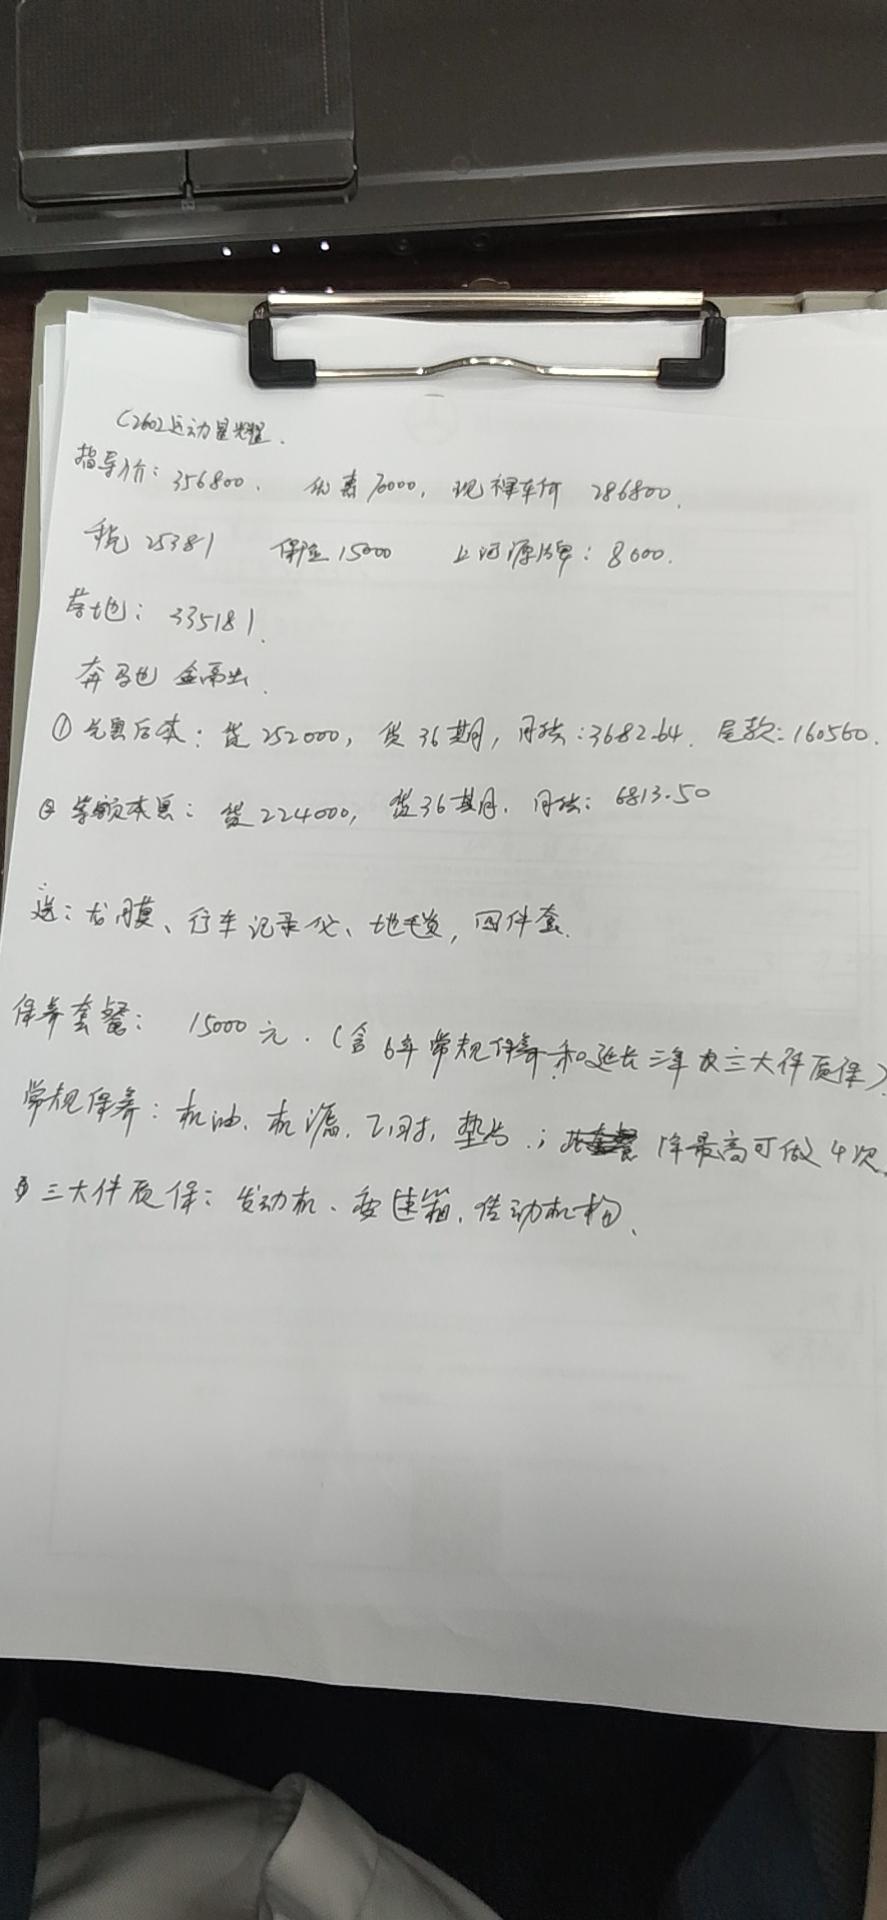 C260L运动星耀.
指导价: 356800. 优惠70000, 现裸车价 286800.
税 25381 保险15000 上河源牌: 8000.
落地: 335181.
奔驰金融
① 先息后本: 贷252000, 贷36期, 月供:3682.64. 尾款:160560.
② 等额本息: 贷224000, 贷36期. 月供: 6813.50
送: 龙膜、行车记录仪、地毯, 四件套.
保养套餐: 15000元. (含6年常规保养和延长三年 三大件质保)
常规保养: 机油. 机滤. 工时. 垫片.; 最高可做4次.
三大件质保: 发动机. 变速箱. 传动机构.